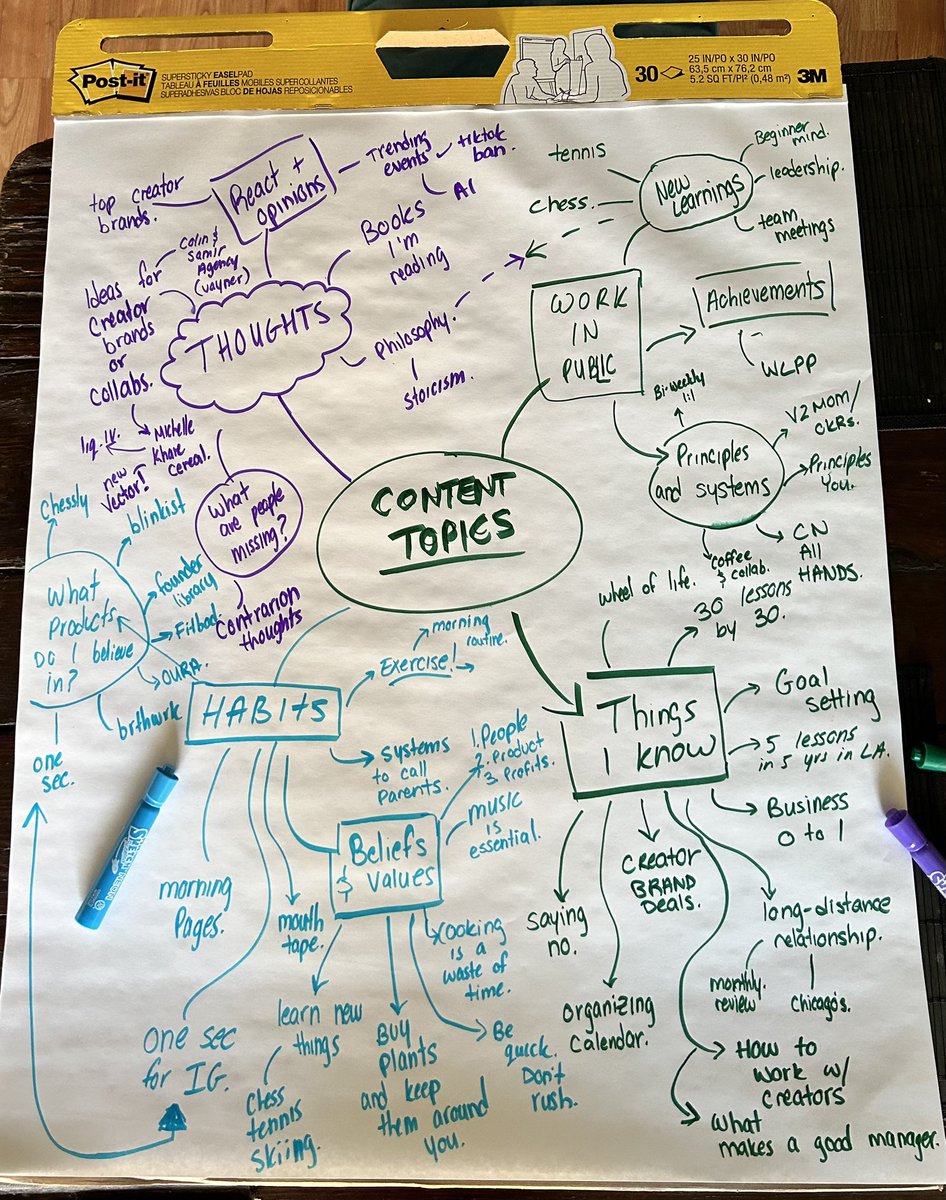 Post-it
SUPERSTICKY EASEL PAD
TABLEAU À FEUILLES MOBILES SUPERCOLLANTES
SUPERADHESIVAS BLOC DE HOJAS REPOSICIONABLES
30
25 IN/PO x 30 IN/PO
63,5 cm x 76,2 cm
5.2 SQ FT/PI² (0,48 m²)
3M
CONTENT
TOPICS
THOUGHTS
React +
opinions
top creator
brands.
Trending
events
tiktok
ban.
AI
Books
I'm
reading
Philosophy.
Stoicism.
Ideas for
creator
brands
or
collabs.
Colin &
Samir
Agency
(vayner)
Michelle
Khare
cereal.
liq. IV.
new
Vector!
What
are people
missing?
Contrarion
thoughts
WORK
IN
PUBLIC
New
Learnings
tennis
Chess.
Beginner
mind.
leadership.
team
meetings
Achievements
WLPP
Principles
and systems
Bi-weekly
1:1
V2MOM/
OKRs.
Principles
You.
CN
All
HANDS.
coffee
& collab.
Things
I know
wheel of life.
30 lessons
by 30.
Goal
setting
5 lessons
in 5 yrs in LA.
Business
0 to 1
long-distance
relationship.
monthly
review
Chicago's.
How to
work w/
creators
What
makes a good manager.
CREATOR
BRAND
DEALS.
organizing
calendar.
saying
no.
HABITS
Exercise!
morning
routine.
systems
to call
Parents.
Beliefs
& values
1. People
2. Product
3. Profits.
music
is
essential.
Cooking
is a
waste of
time.
Be
quick.
Don't
rush.
Buy
plants
and keep
them around
you.
learn new
things
Chess
tennis
skiing.
mouth
tape.
One sec
for IG.
morning
Pages.
What
Products
Do I believe
in?
Chessly
blinkist
founder
library
Fitbod.
OURA.
brthwrk
one
sec.